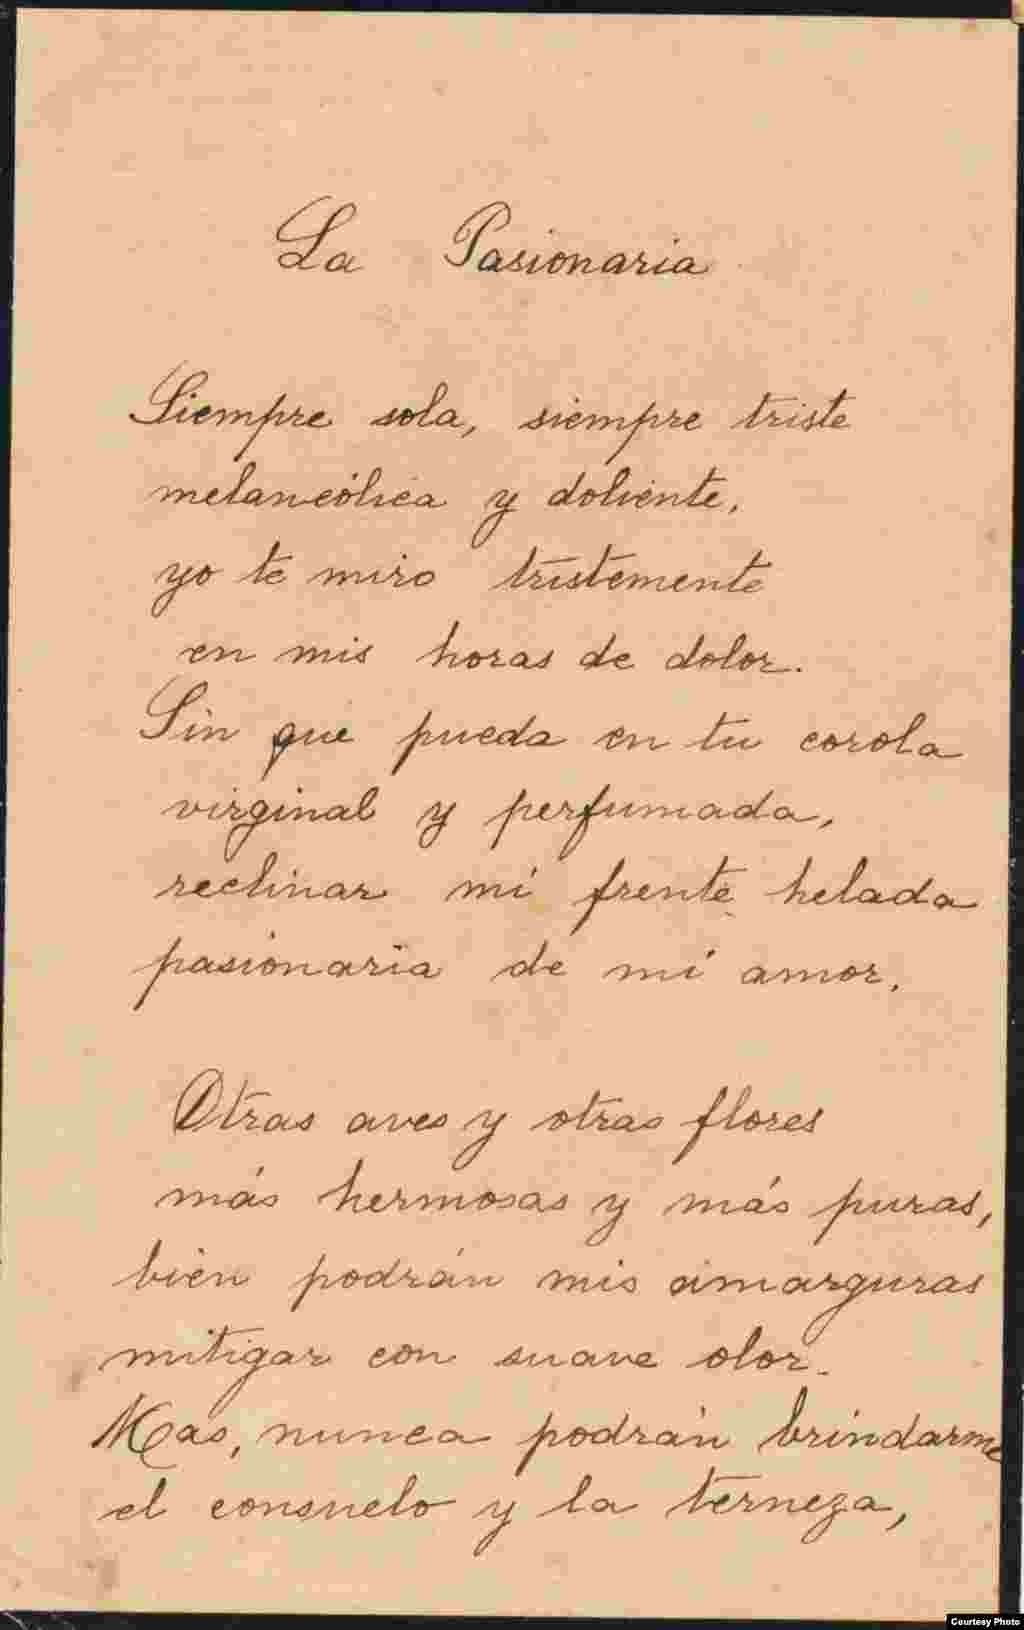 La Pasionaria
Siempre sola, siempre triste
melancólica y doliente,
yo te miro tristemente
en mis horas de dolor.
Sin que pueda en tu corola
virginal y perfumada,
reclinar mi frente helada
pasionaria de mi amor.
Otras aves y otras flores
más hermosas y más puras,
bien podrán mis amarguras
mitigar con suave olor.
Mas, nunca podrán brindarme
el consuelo y la terneza,
Courtesy Photo